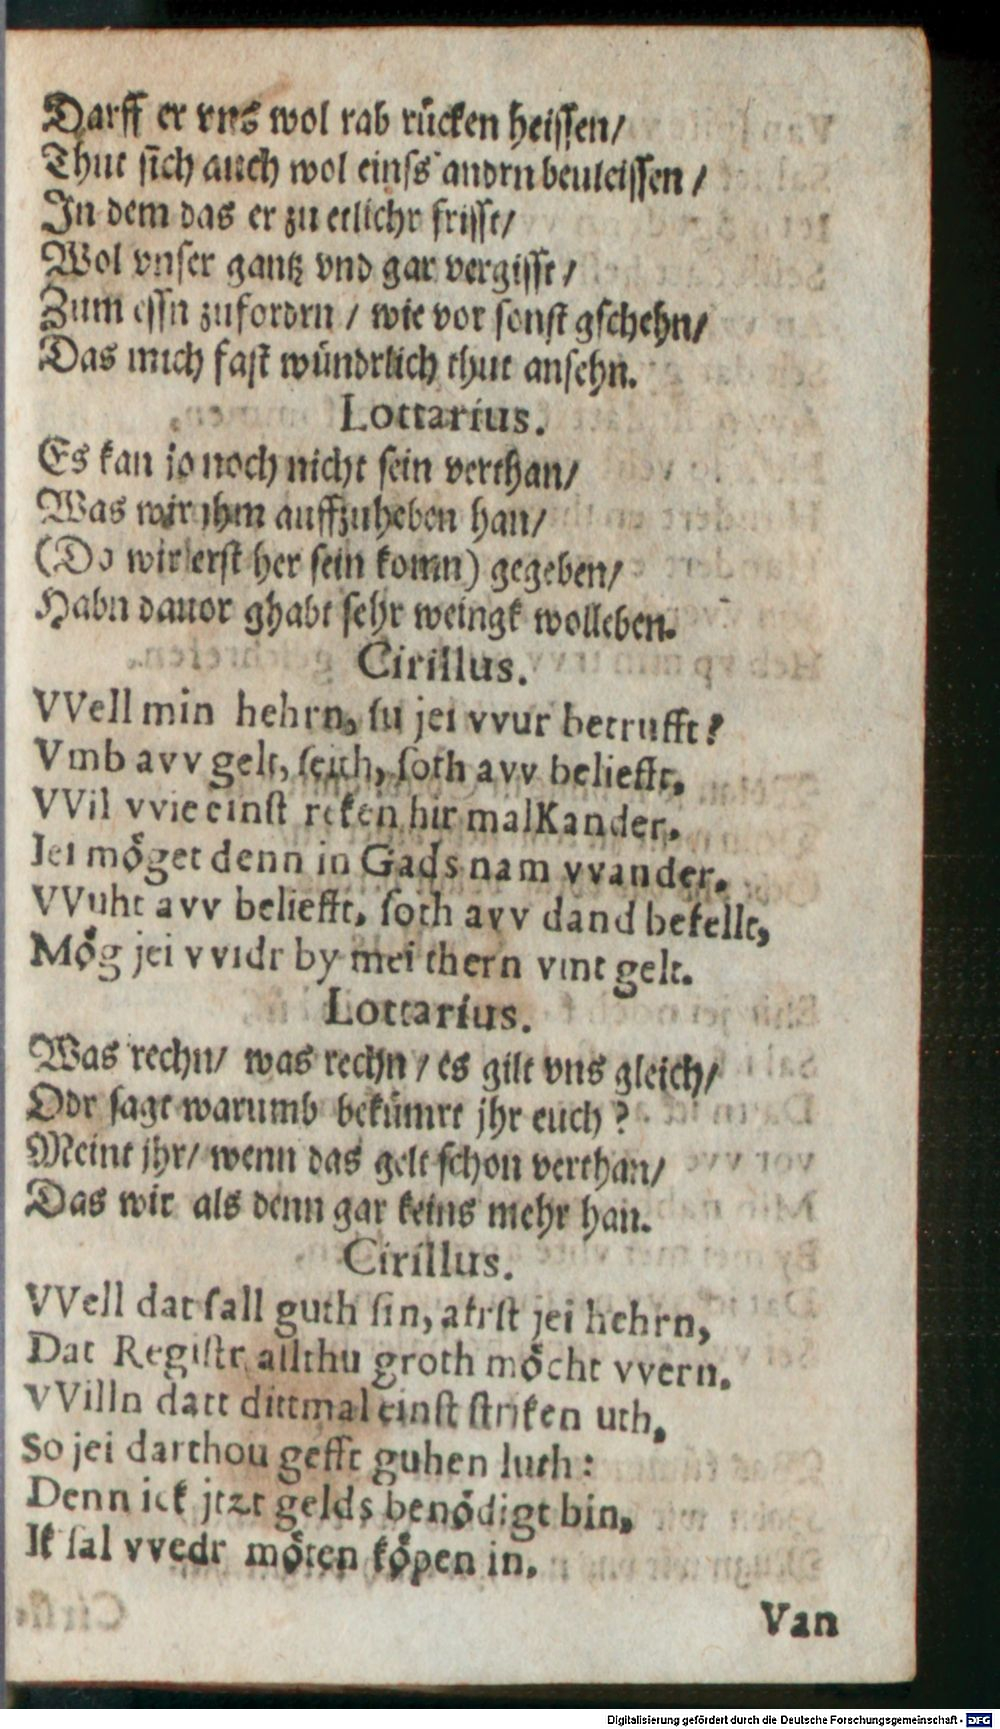 Darff er vns wol rab rücken heissen/
Thut sich auch wol einss andrn beuleissen /
In dem das er zu etlichr frisst/
Wol vnser gantz vnd gar vergisst /
Zum essn zufordrn / wie vor sonst gschehn/
Das mich fast wündrlich thut ansehn.
Lottarius.
Es kan jo noch nicht sein verthan/
Was wir jhm auffzuheben han/
(Do wir erst her sein komn) gegeben/
Habn dauor ghabt sehr weingk wolleben.
Cirillus.
VVell min hehrn, su jei vvur betrufft?
Vmb avv gelt, seith, soth avv beliefft.
VVil vvie einst reken hir malKander.
Iei möget denn in Gads nam vvander.
VVuht avv beliefft. soth avv dand befellt,
Mög jei vvidr by mei thern vmt gelt.
Lottarius.
Was rechn/ was rechn / es gilt vns gleich/
Odr sagt warumb bekümrt jhr euch ?
Meint jhr/ wenn das gelt schon verthan/
Das wir als denn gar keins mehr han.
Cirillus.
VVell dat sall guth sin, afrst jei hehrn,
Dat Registr allthu groth möcht vvern.
VVilln datt dittmal einst striken uth.
So jei darthou gefft guhen luth:
Denn ick jtzt gelds benödigt bin.
Ik sal vvedr möten köpen in.
Van
Digitalisierung gefördert durch die Deutsche Forschungsgemeinschaft - DFG